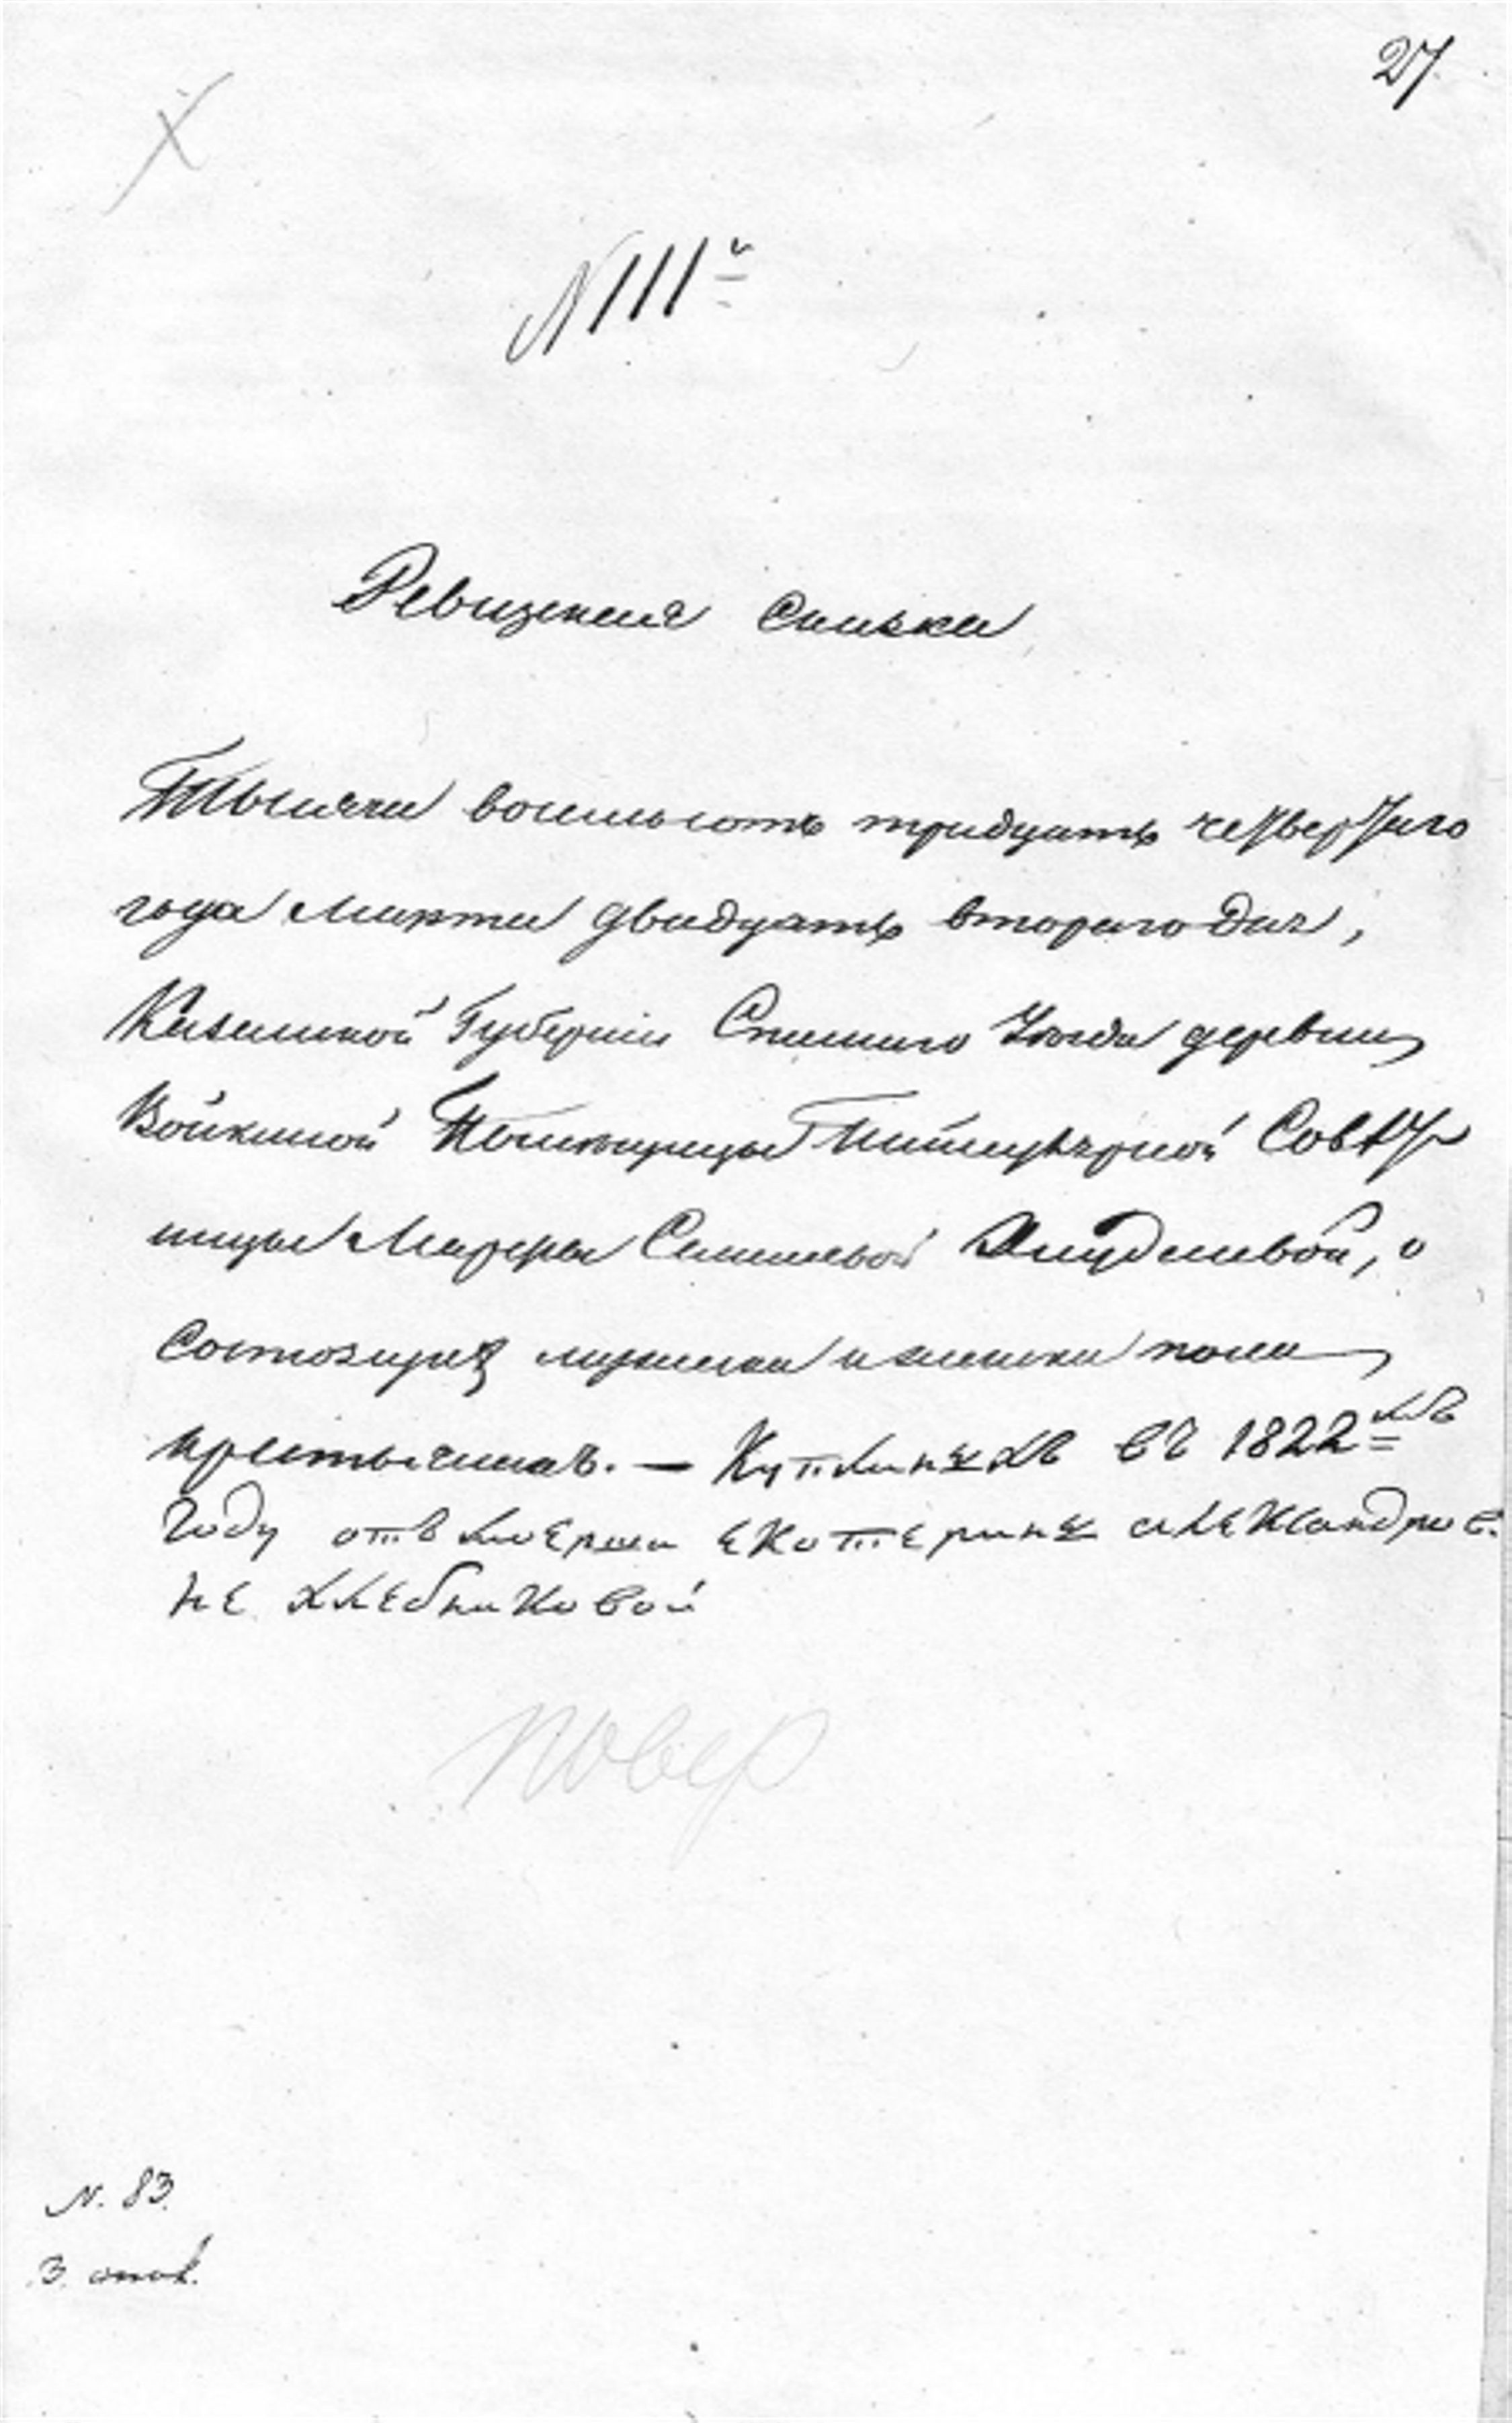 27
N 111й
Ревизская Сказка
Тысяча восемьсотъ тридцать четвертаго
года Марта двадцать втораго дня,
Казанской Губернии Спаскаго Уезда деревни
Войкиной Помещицы Титулярной Совет
ницы Марфы Семеновой, о
состоящих мужска и женска пола
крестьянахъ. — Купленыхъ въ 1822мъ
Году отъ маерши екотерины александров
не хлебниковой
повер
N. 83.
3.